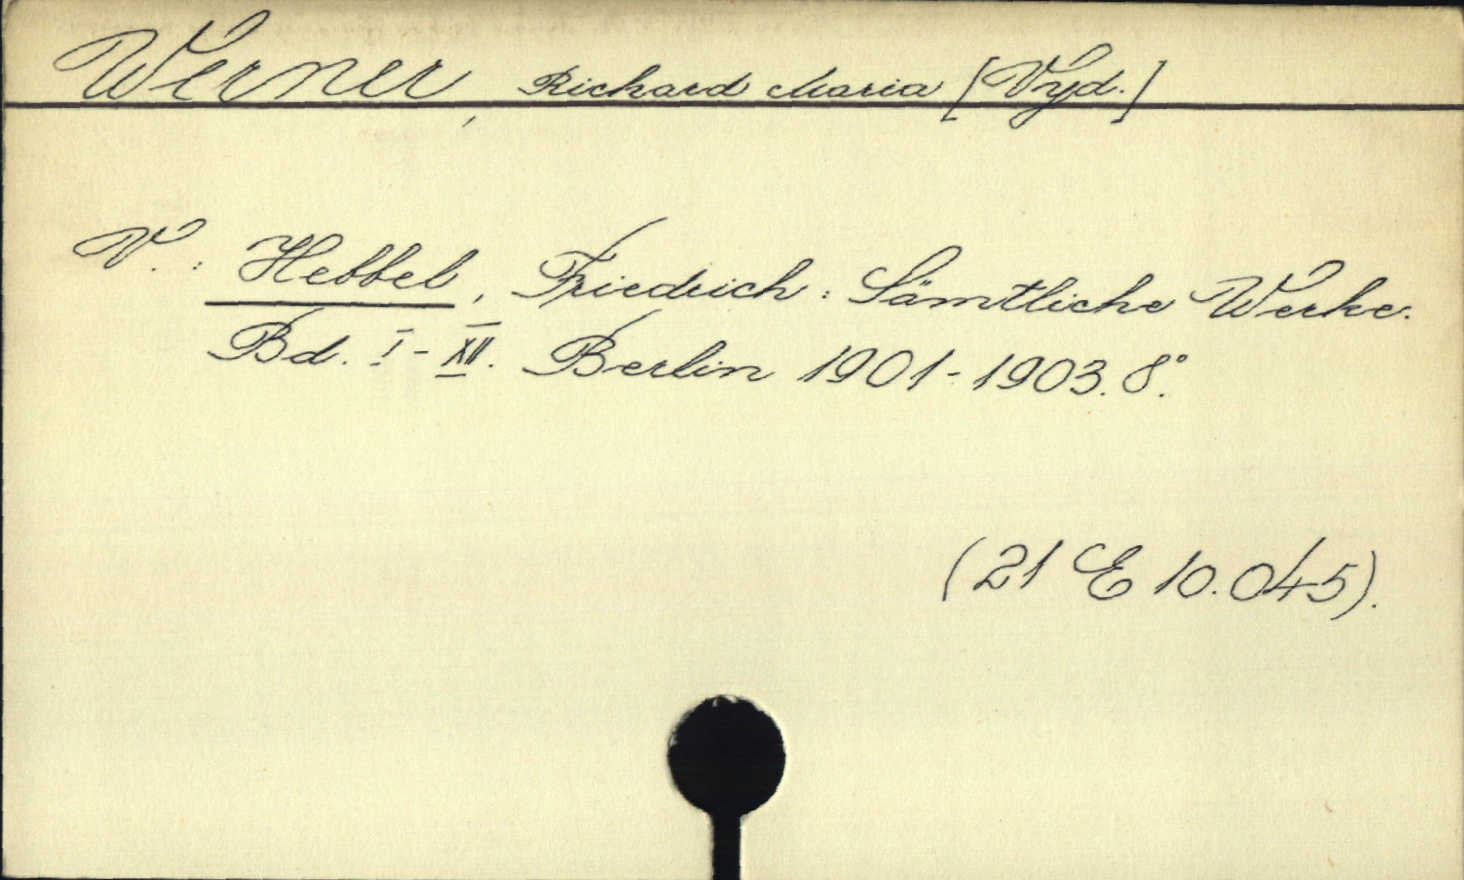 Werner, Richard Maria [Vyd.]
V.: Hebbel, Friedrich: Sämtliche Werke.
Bd. I-XII. Berlin 1901-1903. 8°.
(21 E 10.045).